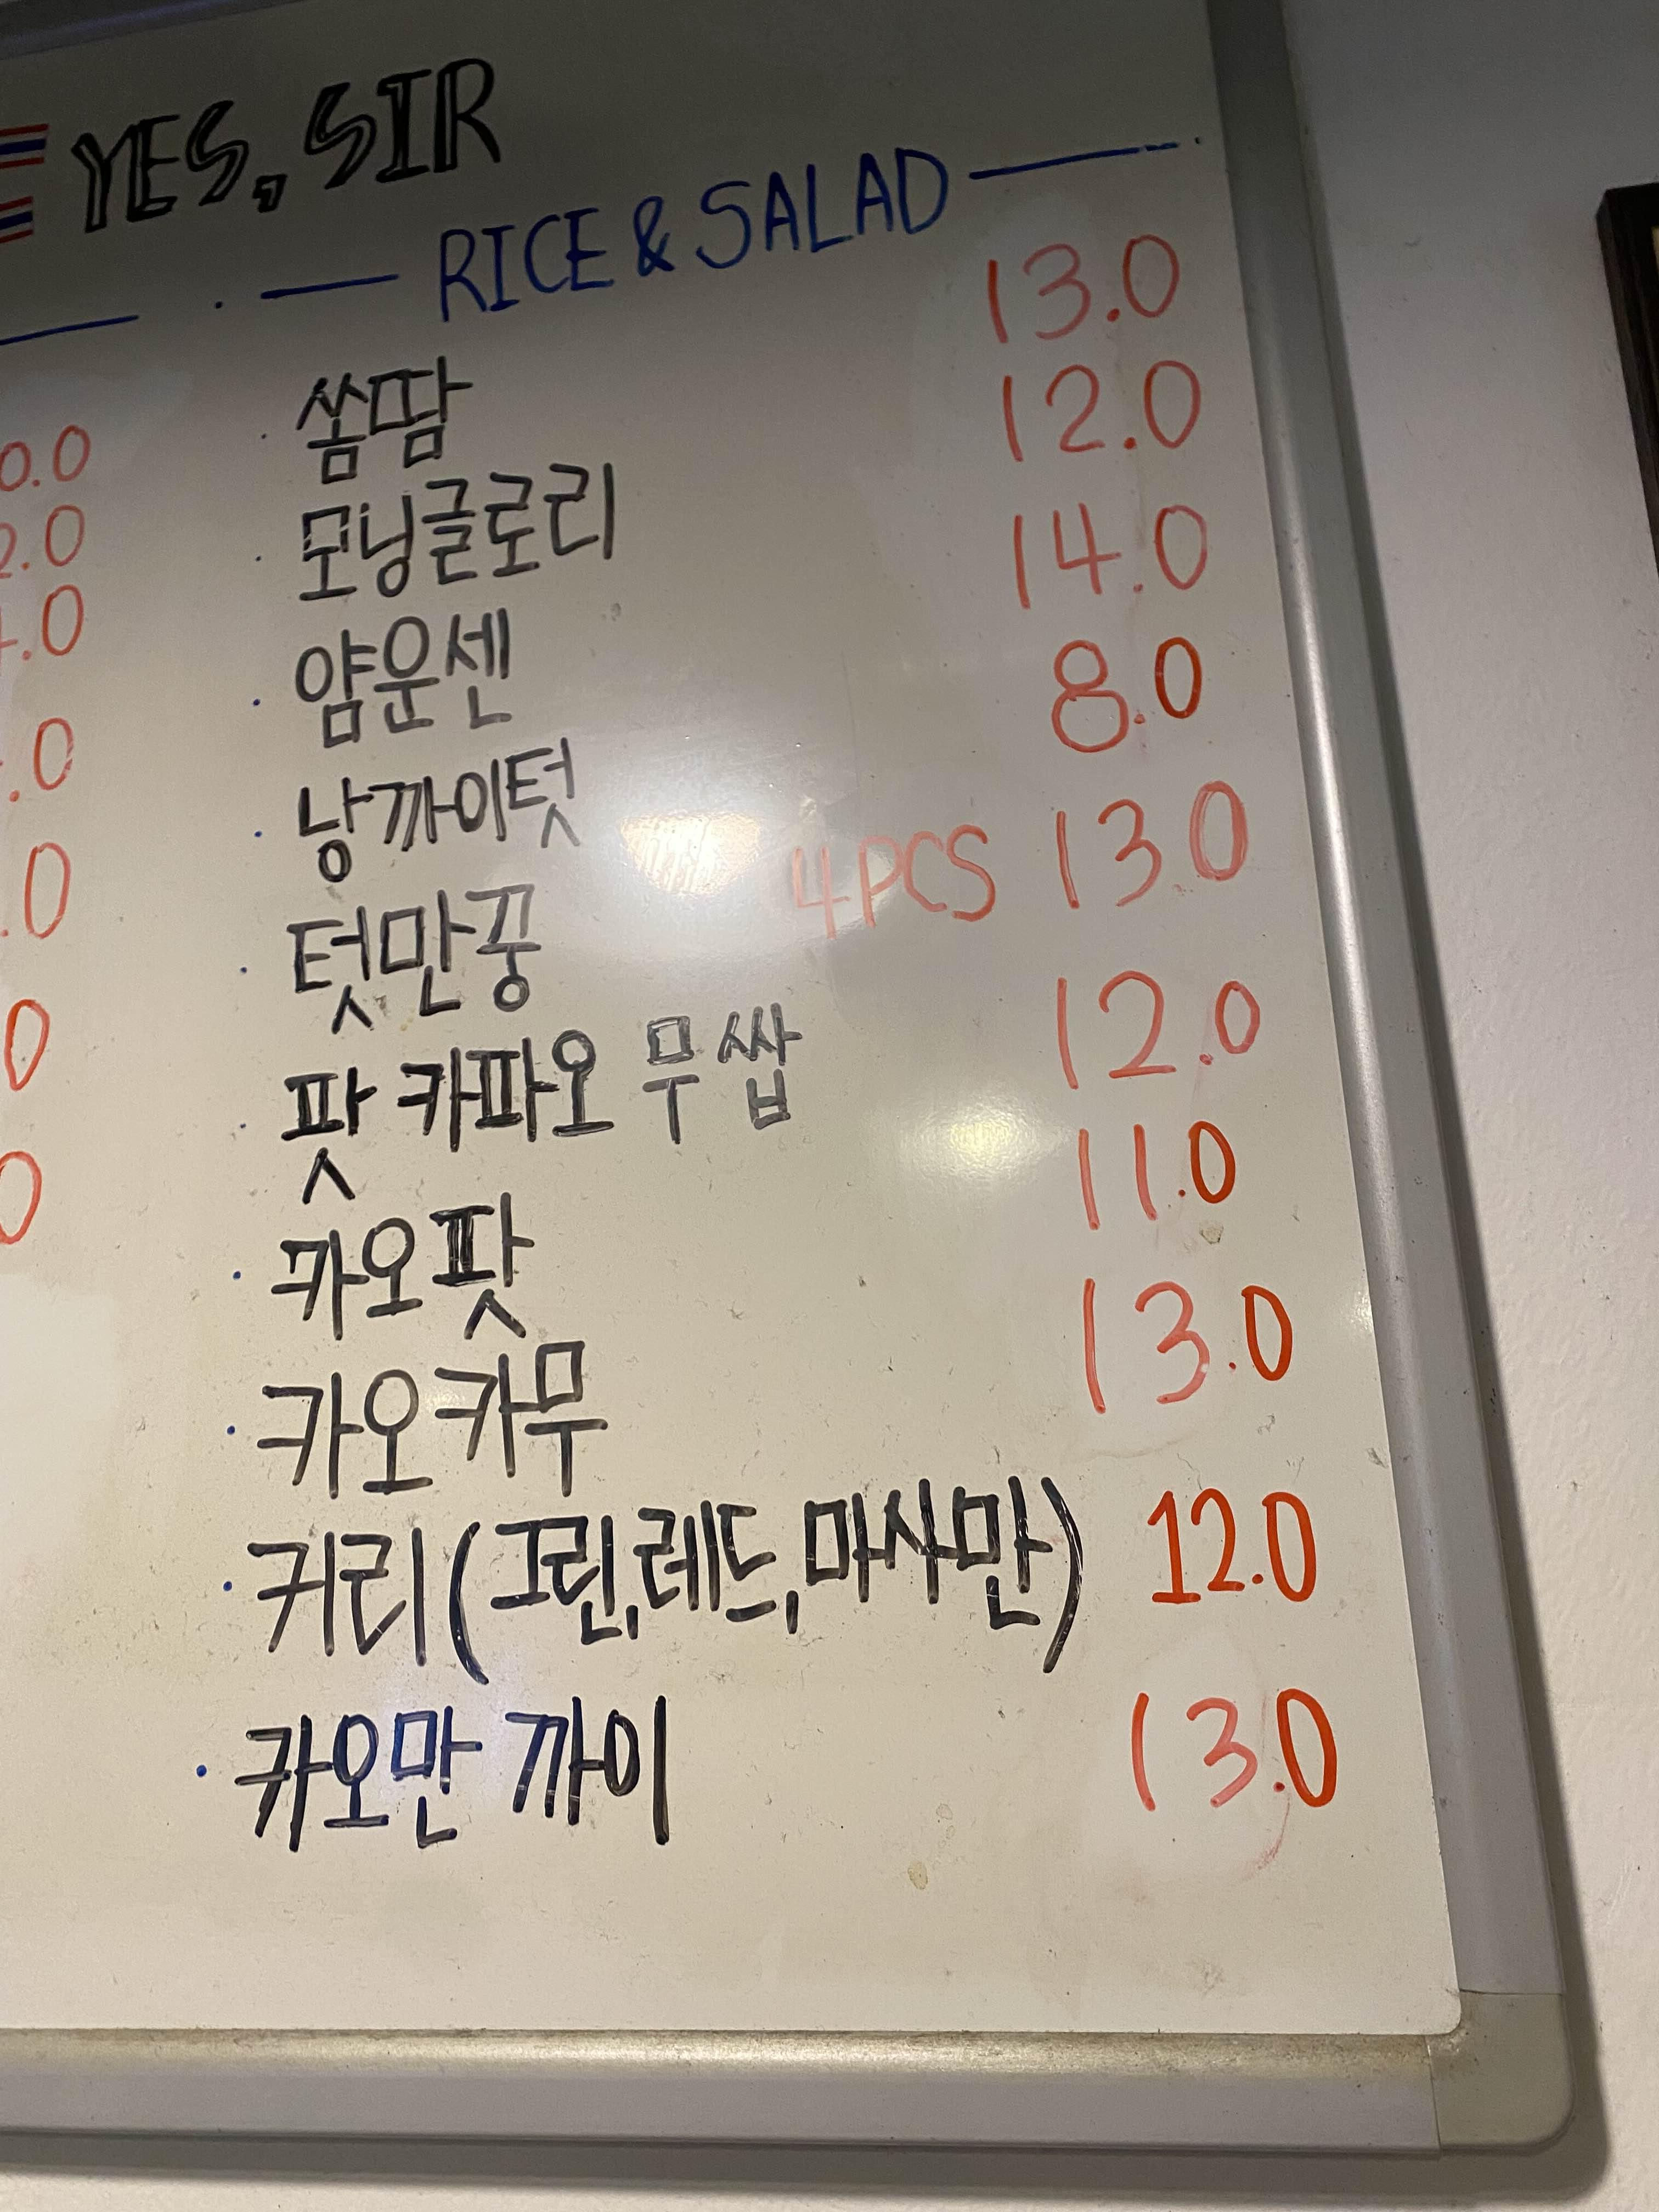 YES, SIR
RICE & SALAD
쏨땀 13.0
모닝글로리 12.0
얌운센 14.0
낭까이텃 8.0
텃만꿍 4PCS 13.0
팟 카파오 무쌉 12.0
카오팟 11.0
카오카무 13.0
커리(그린,레드,마사만) 12.0
카오만 까이 13.0